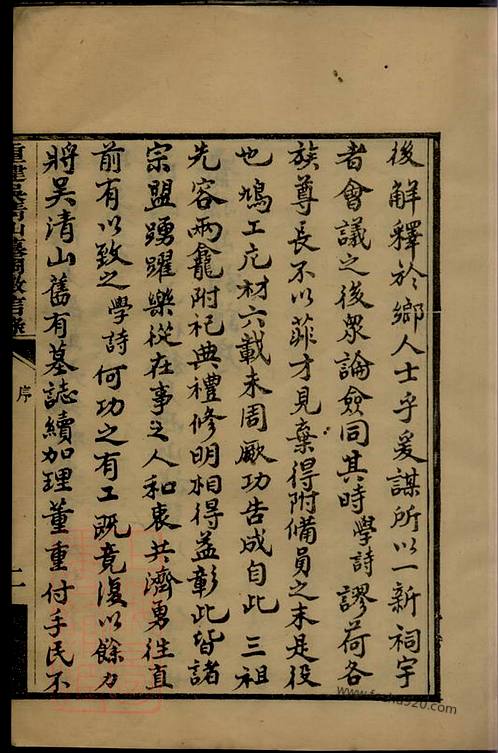 後解釋於鄉人士乎爰謀所以一新祠宇
者會議之後眾論僉同其時學詩謬荷各
族尊長不以菲才見棄得附備員之末是役
也鳩工庀材六載未周厥功告成自此三祖
先容兩龕附祀典禮修明相得益彰此皆諸
宗盟踴躍樂從在事之人和衷共濟勇往直
前有以致之學詩何功之有工既竟復以餘力
將吳清山舊有墓誌續加理董重付手民不
重建吳清山墓祠徵信錄
序
二
www.fozhu920.com